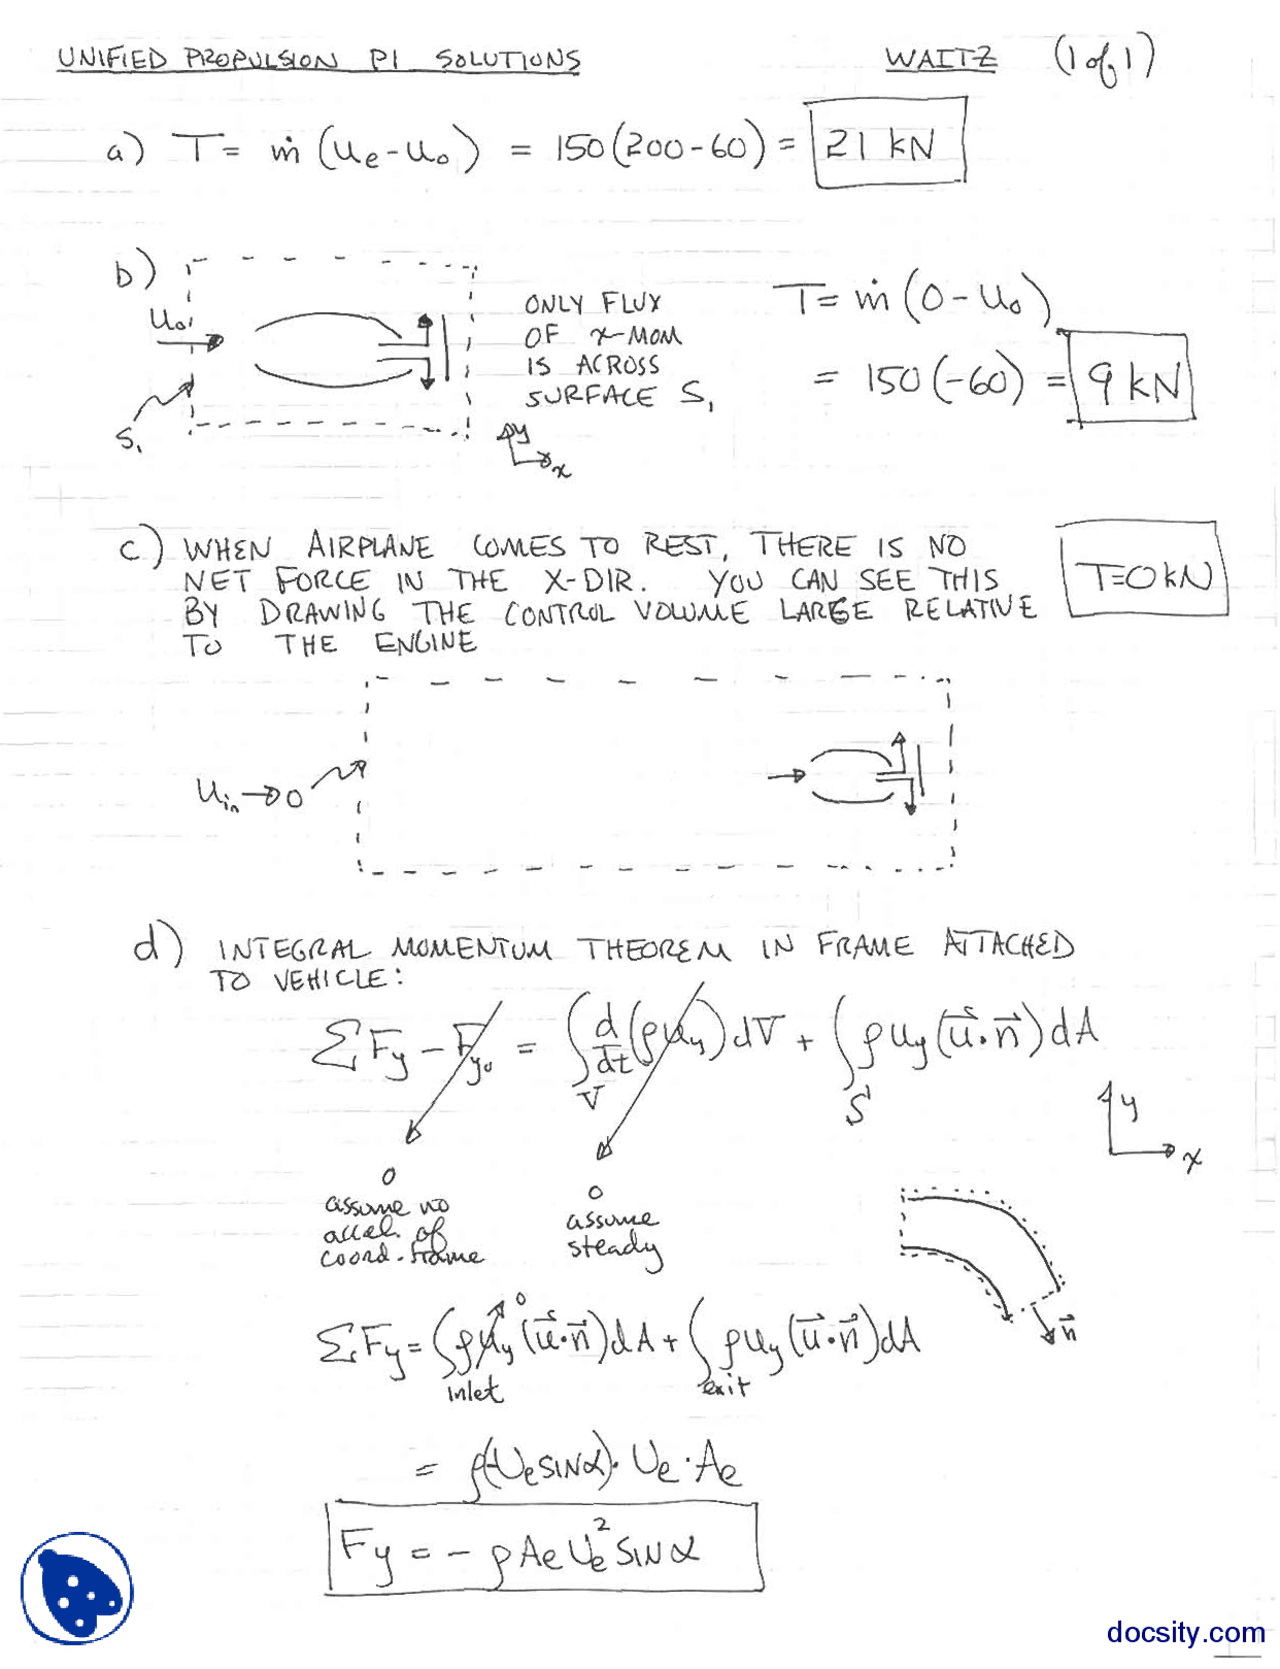 UNIFIED PROPULSION P1 SOLUTIONS WAITZ (1 of 1)
a) T = ṁ (u_e - u_o) = 150(200-60) = 21 kN
b)
u_o
S_1
ONLY FLUX
OF x-MOM
IS ACROSS
SURFACE S_1
y
x
T = ṁ (0 - u_o)
= 150(-60) = 9 kN
c) WHEN AIRPLANE COMES TO REST, THERE IS NO
NET FORCE IN THE X-DIR. YOU CAN SEE THIS
BY DRAWING THE CONTROL VOLUME LARGE RELATIVE
TO THE ENGINE
T=0 kN
U_in → 0
d) INTEGRAL MOMENTUM THEOREM IN FRAME ATTACHED
TO VEHICLE:
ΣF_y - F_yo = ∫_V d/dt (ρu_y) dV + ∫_S ρu_y (u⃗·n⃗) dA
y
x
0
assume no
accel. of
coord. frame
0
assume
steady
n⃗
ΣF_y = ∫_inlet ρu_y (u⃗·n⃗) dA + ∫_exit ρu_y (u⃗·n⃗) dA
0
= ρ(-U_e SIN α)· U_e · A_e
F_y = - ρ A_e U_e² SIN α
docsity.com